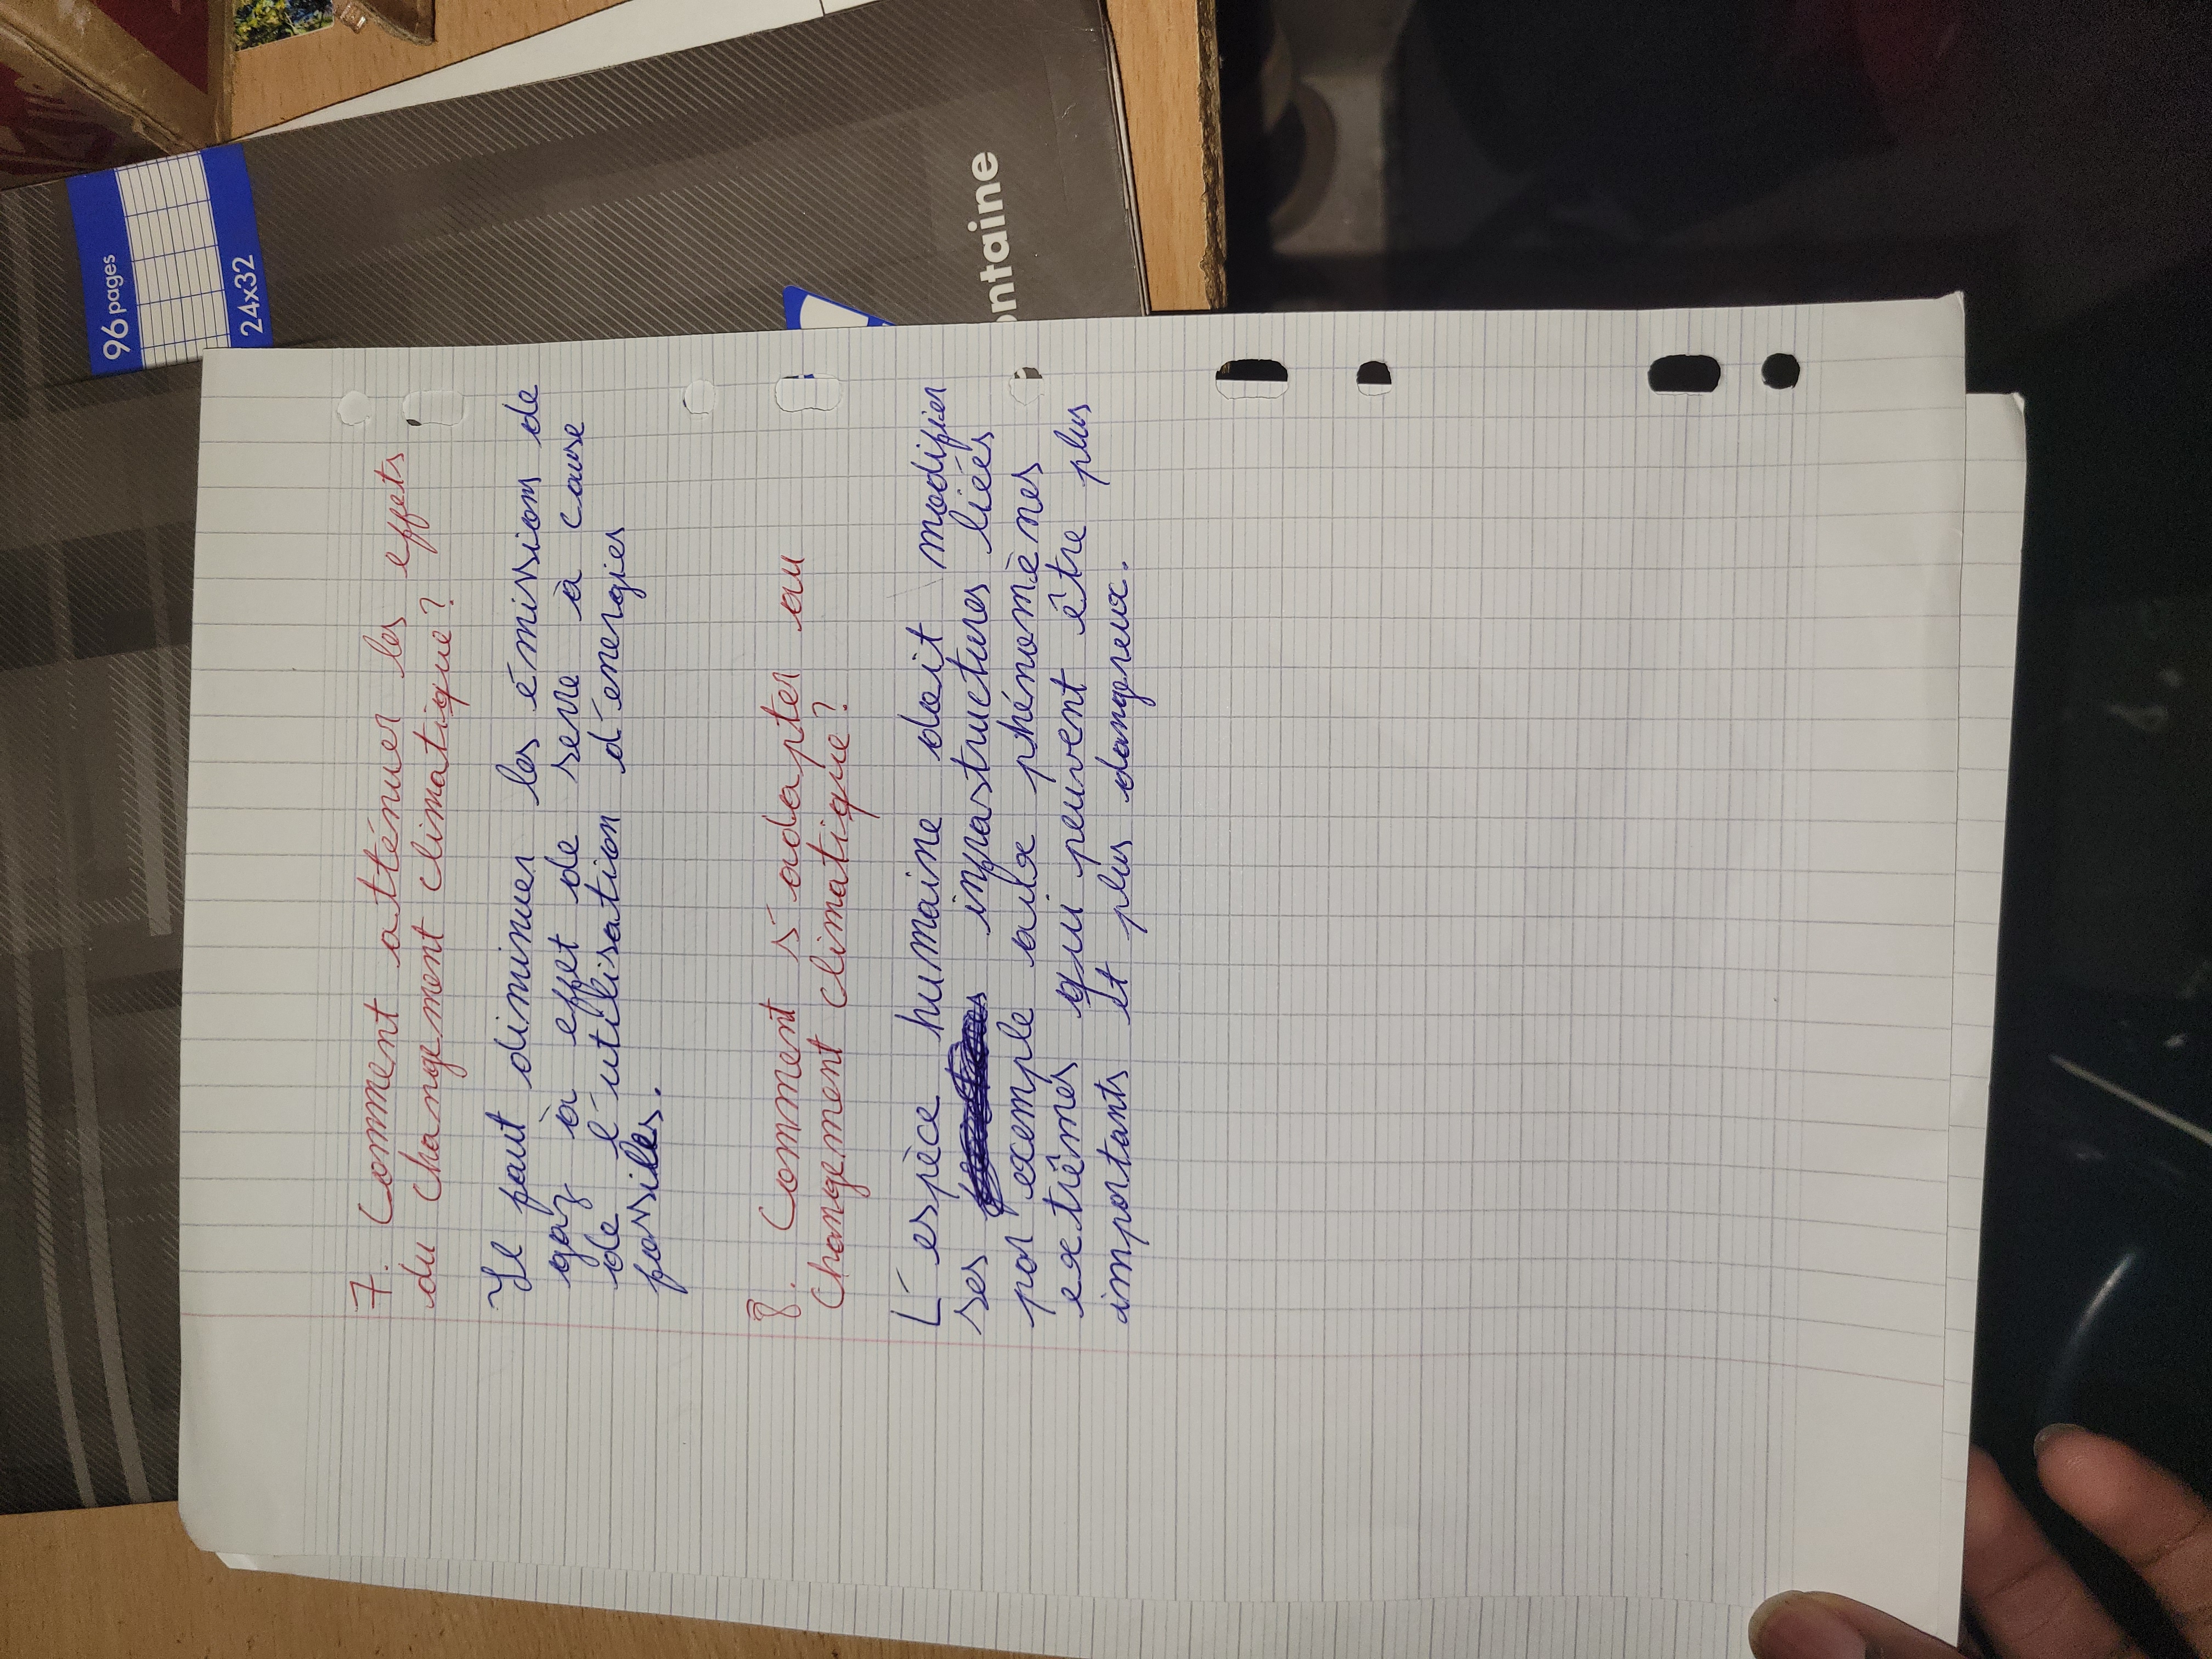 96 pages
24x32
ontaine
7. Comment atténuer les effets
du changement climatique?
Il faut diminuer les émission de
gaz à effet de serre à cause
de l'utilisation d'énergies
fossiles.
8. Comment s'adapter au
changement climatique?
L'espèce humaine doit modifier
ses infrastructures liées
par exemple aux phénomènes
extrêmes qui peuvent être plus
importants et plus dangereux.